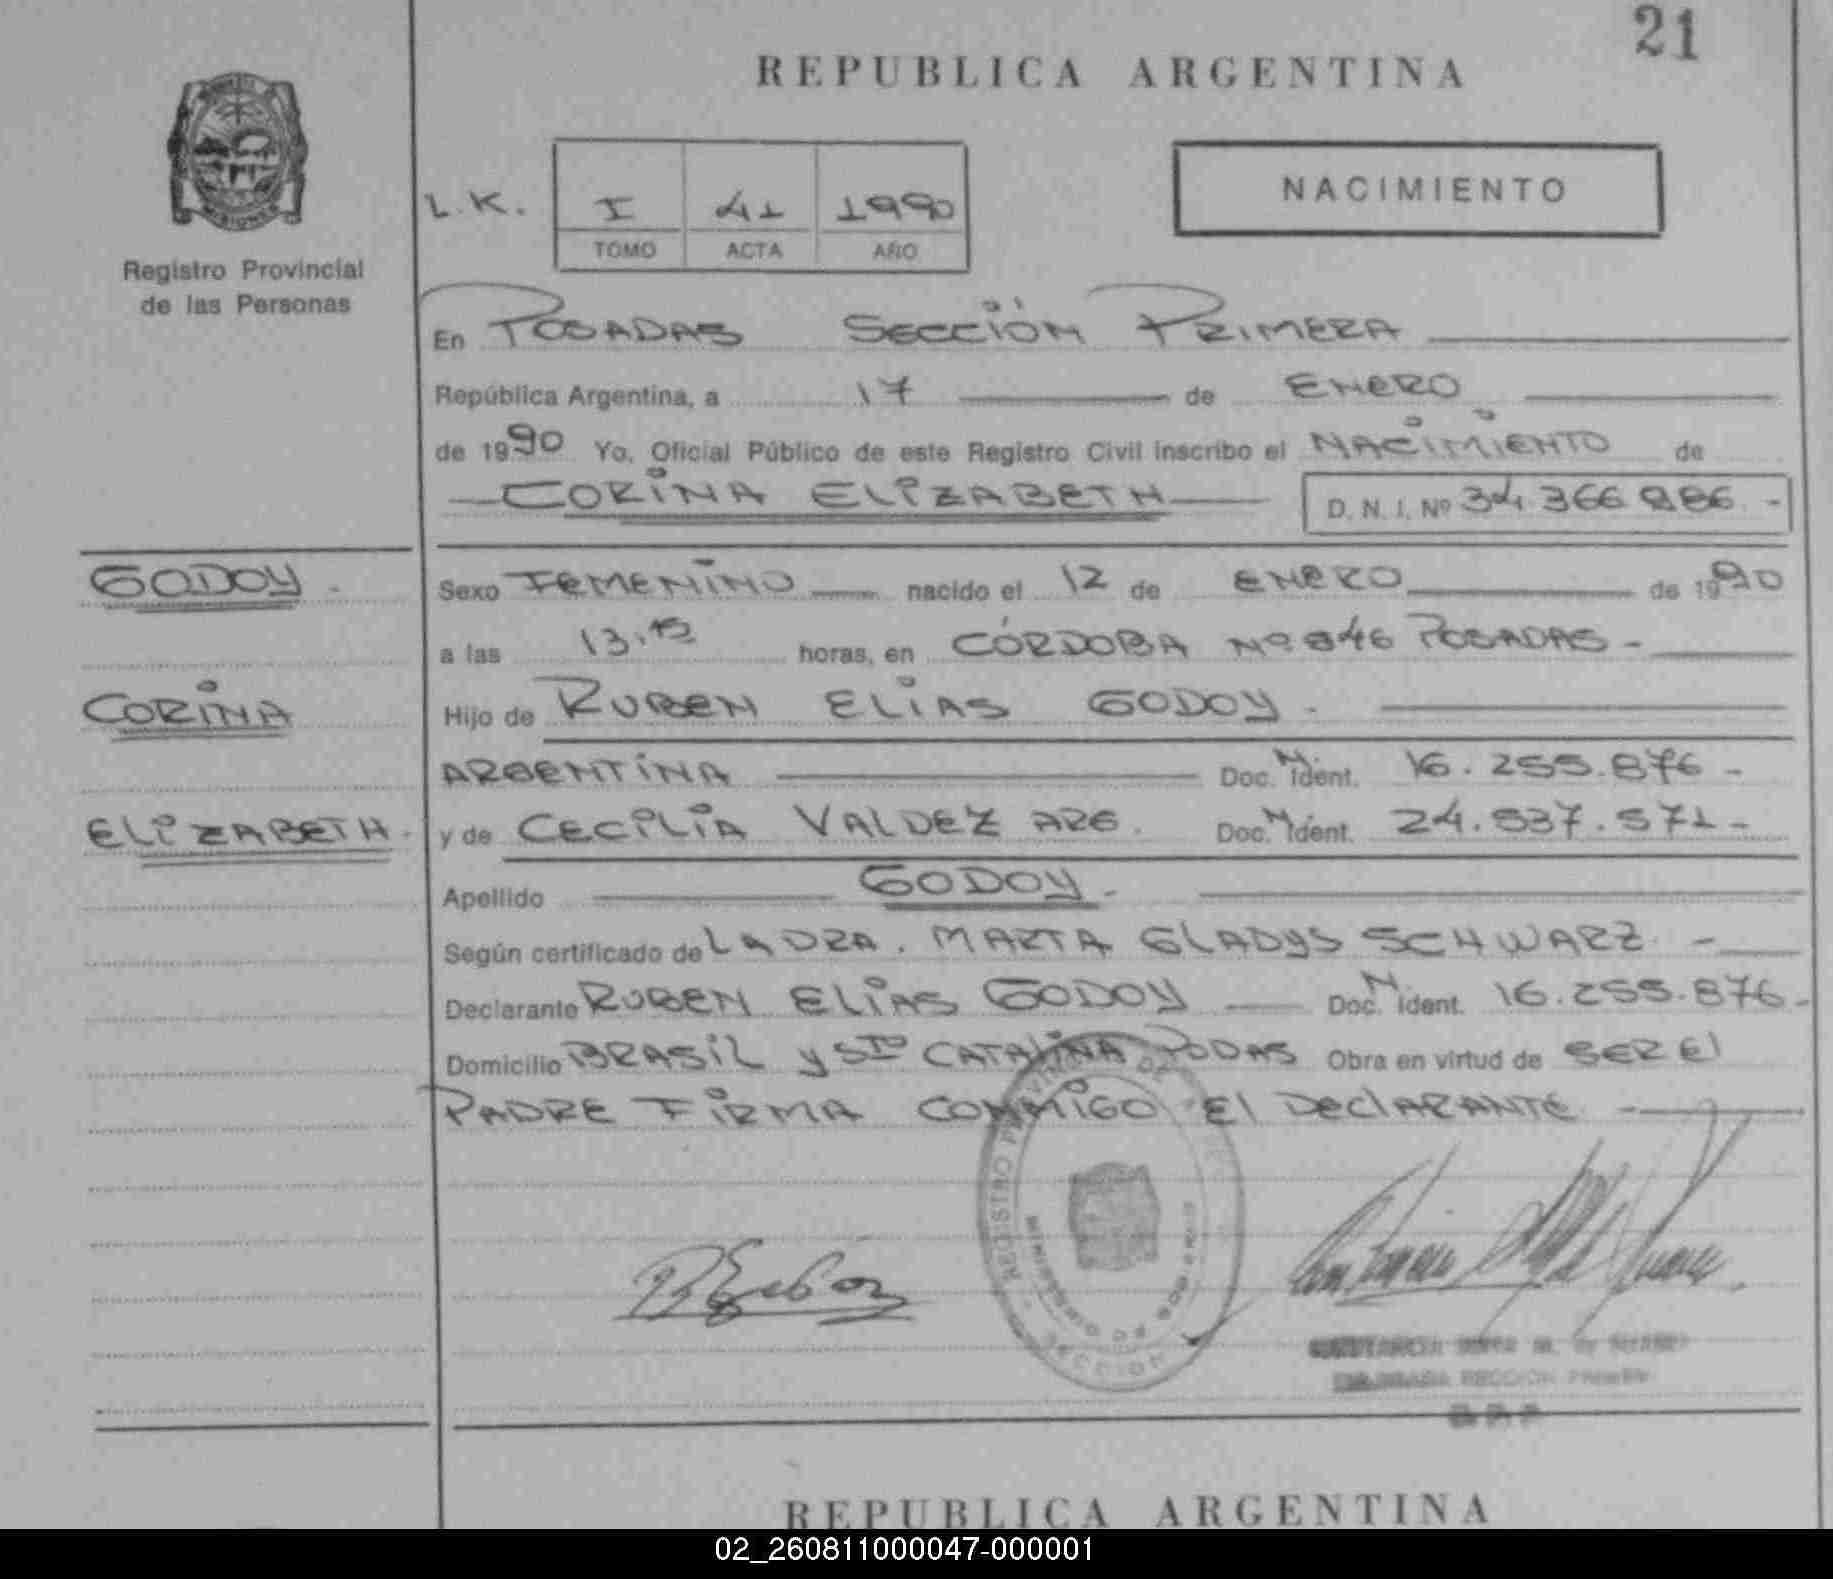 21
REPUBLICA ARGENTINA
MISIONES
Registro Provincial
de las Personas
L.K.
I 41 1990
TOMO ACTA AÑO
NACIMIENTO
En POSADAS SECCIÓN PRIMERA
República Argentina, a 17 de ENERO
de 1990 Yo, Oficial Público de este Registro Civil inscribo el NACIMIENTO de
CORINA ELIZABETH D. N. I. Nº 34.366.986 -
GODOY.
CORINA
ELIZABETH.
Sexo FEMENINO nacido el 12 de ENERO de 1990
a las 13.15 horas, en CÓRDOBA Nº 846 POSADAS -
Hijo de RUBEN ELIAS GODOY.
ARGENTINA Doc. M. Ident. 16.255.876 -
y de CECILIA VALDEZ ARG. Doc. M. Ident. 24.537.571 -
Apellido GODOY -
Según certificado de LA DRA. MARTA GLADYS SCHWARZ -
Declarante RUBEN ELIAS GODOY Doc. M. Ident. 16.255.876 -
Domicilio BRASIL y STO CATALINA PODAS Obra en virtud de SER El
PADRE FIRMA CONMIGO El DEClARANTE -
REGISTRO
SECCION
REPUBLICA ARGENTINA
02_260811000047-000001